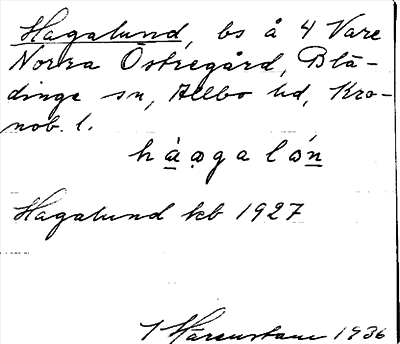 Hagalund, bs å 4 Vare
Norra Östregård, Blä-
dinge sn, Allbo hd, Kro-
nob. l.
hàągaló́n
Hagalund kb 1927
1936